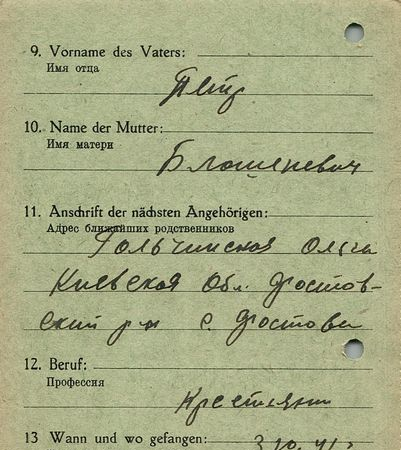 9. Vorname des Vaters:
Имя отца
Петр
10. Name der Mutter:
Имя матери
Блошеневич
11. Anschrift der nächsten Angehörigen:
Адрес ближайших родственников
Гольчинская Ольга
Киевская Обл. Фастов-
ский р-н с. Фастовец
12. Beruf:
Профессия
Крестьянин
13 Wann und wo gefangen:
3.10.41 г